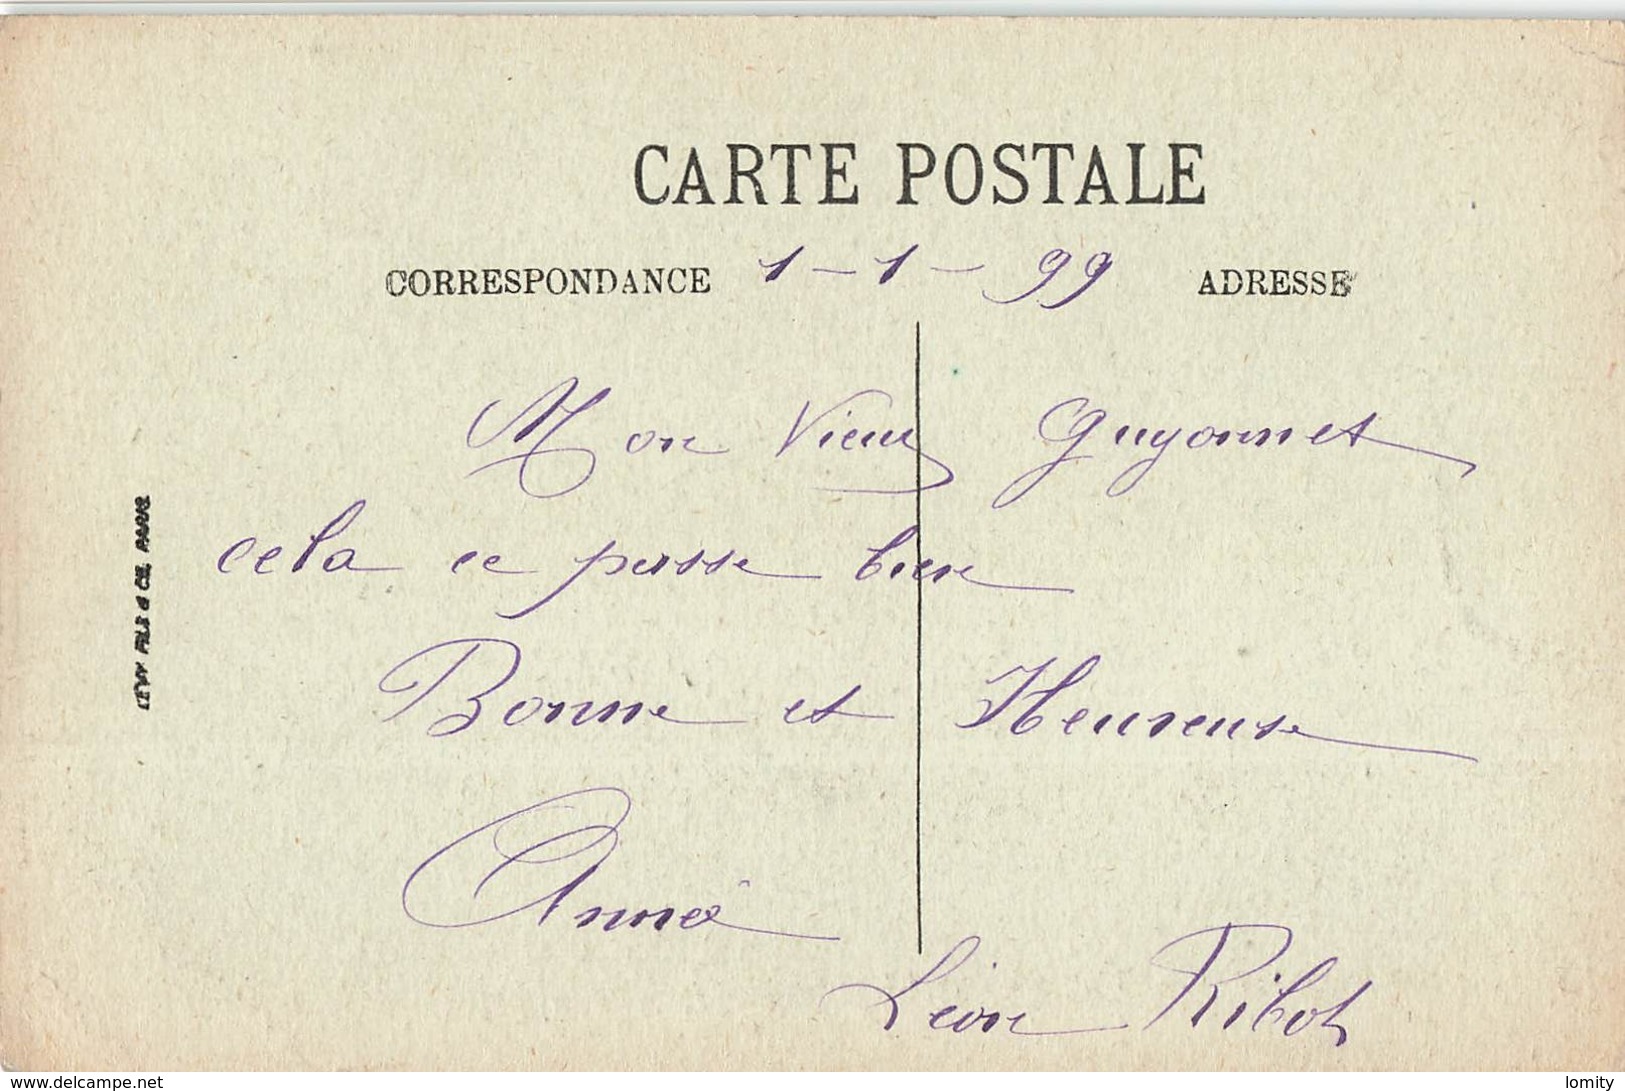 CARTE POSTALE
CORRESPONDANCE 1-1-99 ADRESSE
Mon Vieux Guyonnet
cela ce passe bien
Bonne et Heureuse
Année
Léon Ribot
LÉVY FILS & CIE, PARIS
www.delcampe.net
lomity